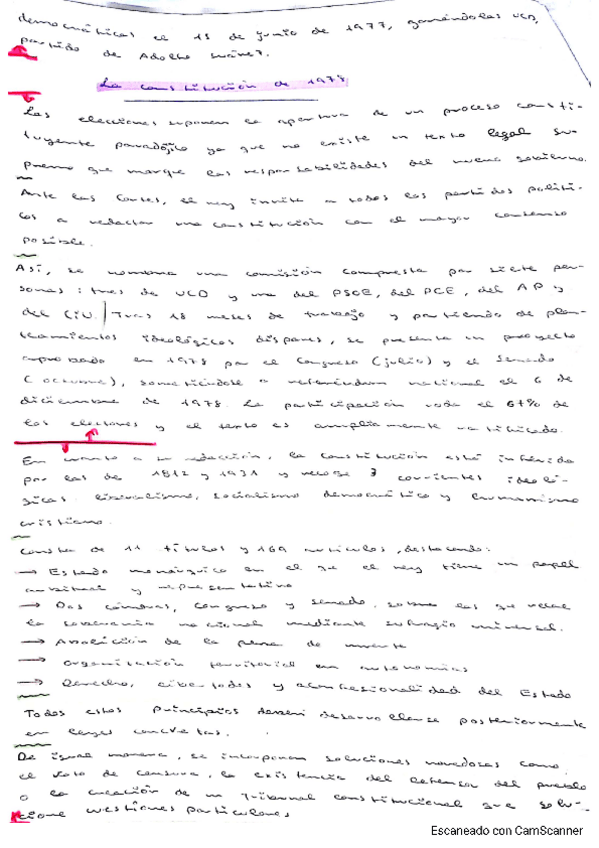 democráticas el 15 de junio de 1977, ganándolas UCD,
partido de Adolfo Suárez.
La constitución de 1978
Las elecciones suponen la apertura de un proceso consti-
tuyente paradójico ya que no existe un texto legal su-
premo que marque las responsabilidades del nuevo gobierno.
Ante las Cortes, el rey invita a todos los partidos políti-
cos a redactar una constitución con el mayor consenso
posible.
Así, se nombra una comisión compuesta por siete per-
sonas: tres de UCD y una del PSOE, del PCE, del AP y
del CiU. Tras 18 meses de trabajo y partiendo de plan-
teamientos ideológicos dispares, se presenta un proyecto
aprobado en 1978 por el Congreso (julio) y el Senado
(octubre), sometiéndose a referéndum nacional el 6 de
diciembre de 1978. La participación roda el 67% de
los electores y el texto es ampliamente ratificado.
En cuanto a su redacción, la constitución está influida
por las de 1812 y 1931 y recoge 3 corrientes ideoló-
gicas: liberalismo, socialismo democrático y humanismo
cristiano.
Consta de 11 títulos y 169 artículos, destacando:
→ Estado monárquico en el que el rey tiene un papel
arbitral y representativo
→ Dos cámaras, congreso y senado, sobre las que recae
la soberanía nacional mediante sufragio universal.
→ Abolición de la pena de muerte
→ Organización territorial en autonomías
→ Derecho, libertades y aconfesionalidad del Estado
Todos estos principios deben desarrollarse posteriormente
en leyes concretas.
De igual manera, se incorporan soluciones novedosas como
el voto de censura, la existencia del defensor del pueblo
o la creación de un Tribunal constitucional que solu-
cione cuestiones particulares
Escaneado con CamScanner